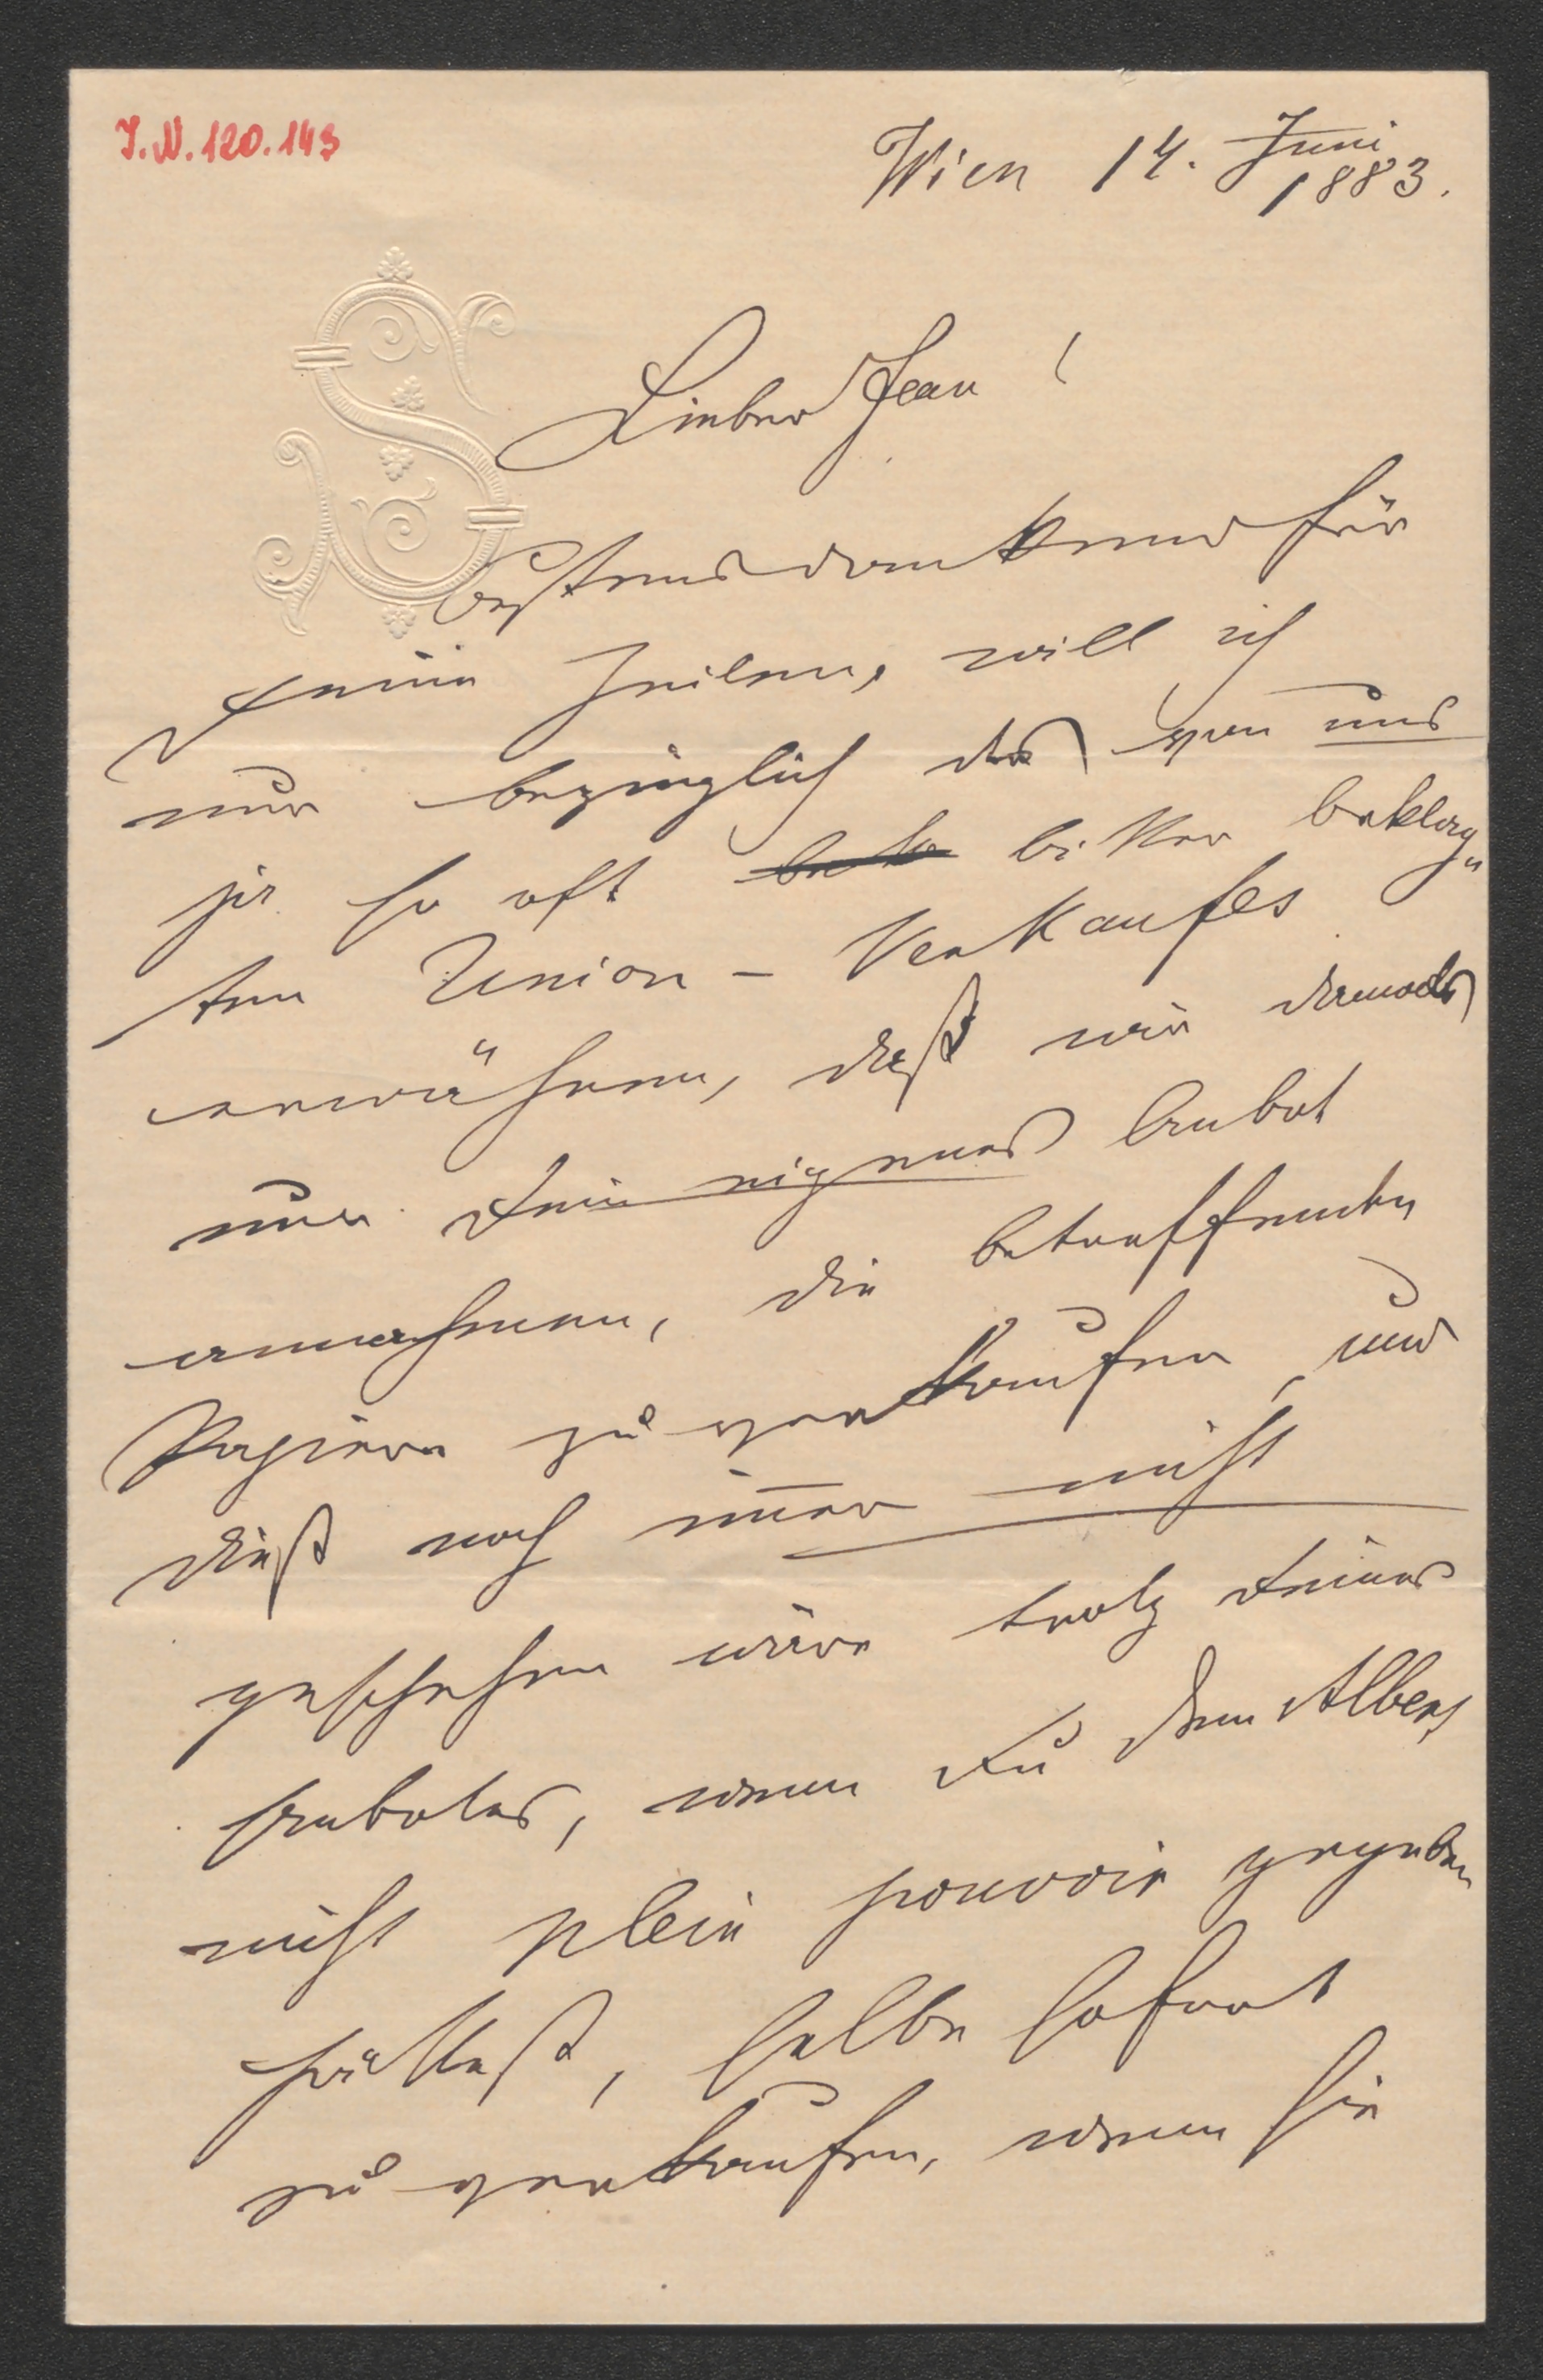 I.N. 120.143
Wien 14. Juni
1883.
Lieber Jean!
Bestens dankend für
Deine Zeilen, will ich
nur bezüglich des von uns
ja so oft bitter beklag„
ten Union - Verkaufes
erwähnen, daß wir damals
nur Dein eigenes Anbot
annahmen, die betreffenden
Papiere zu verkaufen, und
dieß noch im̅er nicht
geschehen wäre trotz Deines
Anbotes, wenn Du dem Albert
nicht plein pouvoir gegeben
hättest, selbe sofort
zu verkaufen, wenn sie